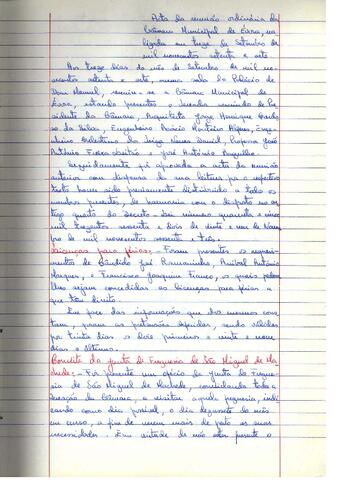 Acta da reunião ordinária da
Câmara Municipal de Évora, rea
lizada em treze de Setembro de
mil novecentos setenta e sete
Aos treze dias do mês de Setembro de mil no-
vecentos setenta e sete, numa sala do Palácio de
Dom Manuel, reuniu-se a Câmara Municipal de
Évora, estando presentes o Vereador servindo de Pre
sidente da Câmara, Arquitecto Jorge Henrique
da Silva, Engenheiro
António José
Seguidamente foi aprovada a acta da reunião
anterior com dispensa da sua leitura por o respectivo
texto haver sido previamente distribuído a todos os
membros presentes, de harmonia com o disposto no ar
tigo quarto do Decreto-Lei número quarenta e cinco
mil trezentos sessenta e dois de vinte e um de Novem
bro de mil novecentos sessenta e três.
Licenças para férias:- Foram presentes os requeri-
mentos de Cândido José Ramalhinho, Aníbal António
Marques, e Francisco Joaquim Franco, os quais pedem
lhes sejam concedidas as licenças para férias a
que têm direito.
Em face das informações que dos mesmos cons
tam, foram as pretensões deferidas, sendo
por trinta dias os dois primeiros e vinte e nove
dias o último.
Convite da Junta de Freguesia de São Miguel de Ma
chede:- Foi presente um ofício da Junta de Fregue
sia de São Miguel de Machede, convidando toda a
Vereação da Câmara, a visitar aquela freguesia, indi
cando como dia possível, o dia dezassete do mês
em curso, a fim de verem mais de perto as suas
necessidades. Em virtude de não estar presente o